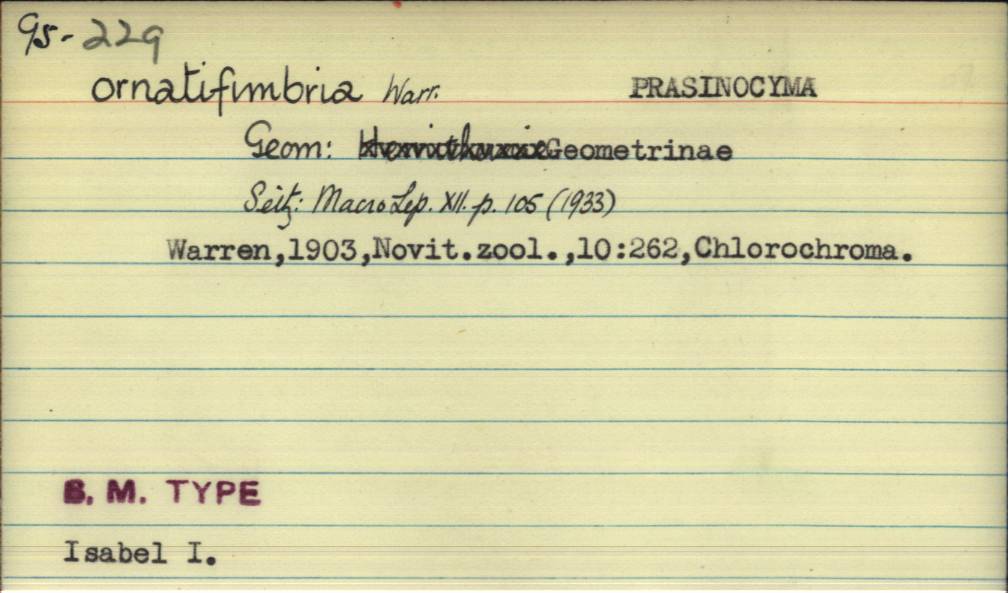 95-229
ornatifimbria Warr. PRASINOCYMA
Geom: Geometrinae
Seitz: Macro Lep. XII. p. 105 (1933)
Warren,1903,Novit.zool.,10:262,Chlorochroma.
B. M. TYPE
Isabel I.